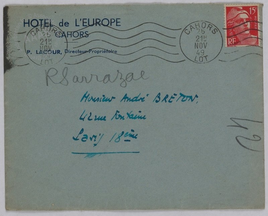 HOTEL de L'EUROPE
CAHORS
P. LACOUR, Directeur-Propriétaire
CAHORS
NOV
LOT
15
RF
R Sarrazac
Monsieur André BRETON
42 rue Fontaine